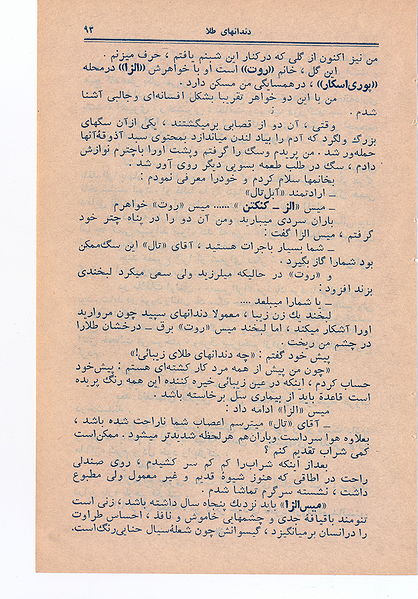 دندانهای طلا ۹۳
من نیز اکنون از گلی که درکنار این شبنم یافتم ، حرف میزنم .
این گل ، خانم «روت» است او با خواهرش «الزا» درمحله
«بوری‌اسکار» ، درهمسایگی من مسکن دارد .
من با این دو خواهر تقریبا بشکل افسانه‌ای وجالبی آشنا
شدم .
وقتی ، آن دو از قصابی برمیگشتند ، یکی ازآن سگهای
بزرگ ولگرد که آدم را بیاد لندن میاندازد بمحتوی سبد آذوقهٔ‌آنها
حمله‌ور شد . من پریدم وسگ را گرفتم وپشت اورا باچترم نوازش
دادم ، سگ در طلب طعمه بسویی دیگر روی آور شد .
بخانمها سلام کردم و خودرا معرفی نمودم :
ـ ارادتمند «آبل‌تال»
ـ میس «الز ـ کنگتن» ...... میس «روت» خواهرم
باران سردی میبارید ومن آن دو را در پناه چتر خود
گرفتم ، میس الزا گفت :
ـ شما بسیار باجرات هستید ، آقای «تال» این سگ‌ممکن
بود شمارا گاز بگیرد .
و «روت» در حالیکه میلرزید ولی سعی میکرد لبخندی
بزند افزود :
ـ یا شمارا میبلعد ....
لبخند یك زن زیبا ، معمولا دندانهای سپید چون مروارید
اورا آشکار میکند ، اما لبخند میس «روت» برق ـ درخشان طلارا
در چشم من ریخت .
پیش خود گفتم : «چه دندانهای طلای زیبائی!»
«چون من پیش از همه مرد کار کشته‌ای هستم : پیش‌خود
حساب کردم ، اینکه در عین زیبائی خیره کننده این همه رنگ پریده
است قاعدة باید از بیماری سل برخاسته باشد .
میس «الزا» ادامه داد :
ـ آقای «تال» میترسم اعصاب شما ناراحت شده باشد ،
بعلاوه هوا سرداست وباران‌هم هرلحظه شدیدتر میشود . ممکن‌است
کمی شراب تقدیم کنم ؟
بعداز اینکه شراب‌را کم کم سر کشیدم ، روی صندلی
راحت در اطاقی که هنوز شیوهٔ قدیم و غیر معمول ولی مطبوع
داشت ، نشسته سرگرم تماشا شدم .
«میس‌الزا» باید نزدیك پنجاه سال داشته باشد ، زنی است
تنومند باقیافهٔ جدی و چشمهایی خاموش و نافذ ، احساس طراوت
را درانسان برمیانگیزد ، گیسوانش چون شعله‌سیال حنایی‌رنگ‌است.